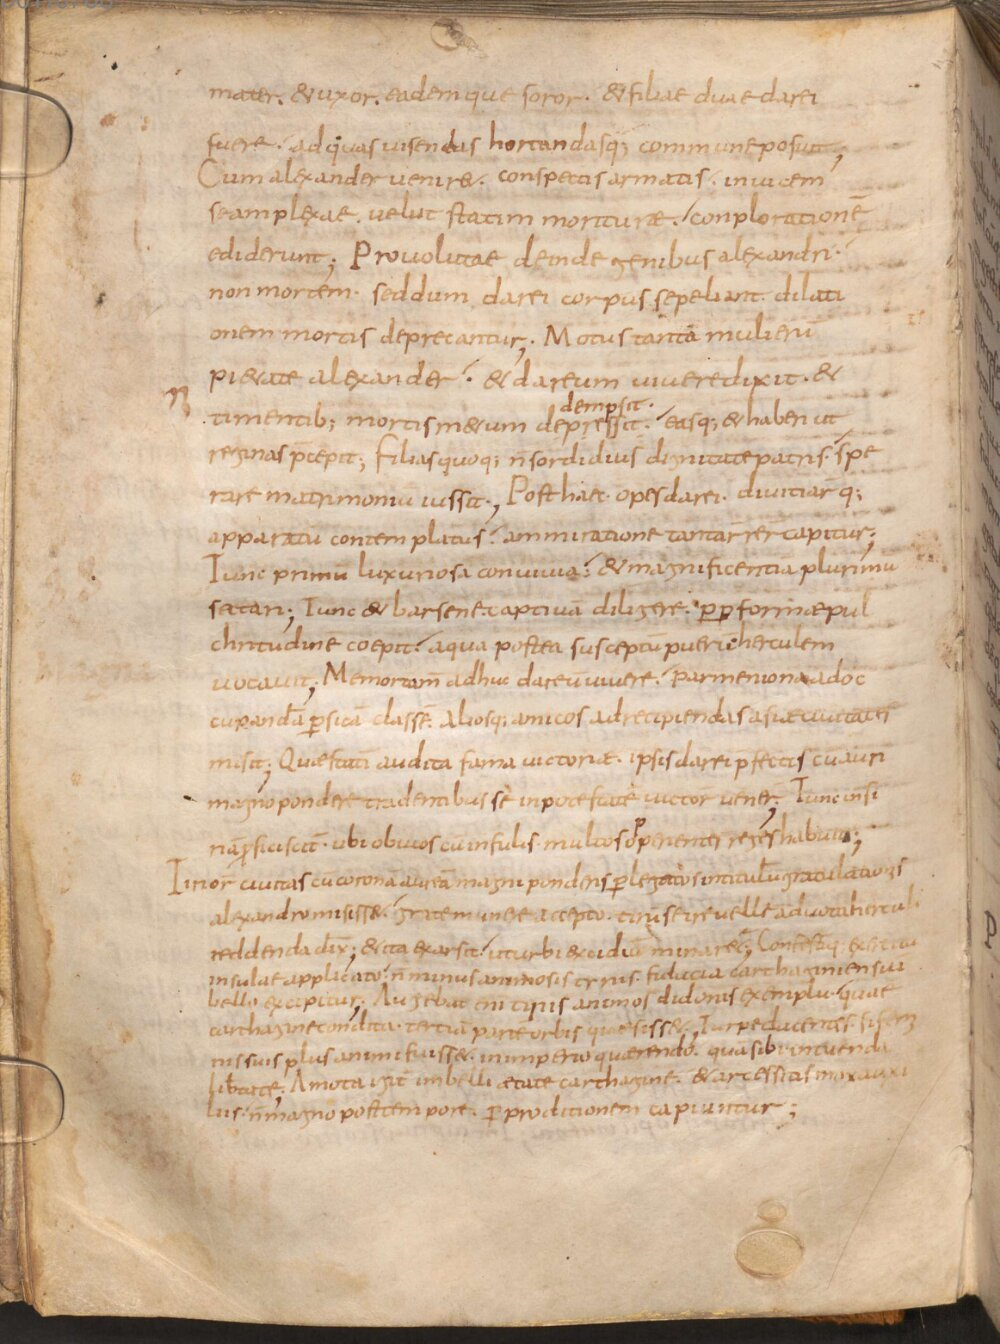 mater. & uxor. eademque soror. & filiae duae darei
fuere. ad quas uisendas hortandasq; commune posuit;
Cum alexander venire. conspectis armatis. inuicem
se amplexae. uelut statim moriturae. conplorationē
ediderunt; Prouolutae deinde genibus alexandri.
non mortem. sed dum darei corpus sepeliant. dilati
onem mortis deprecantur; Motus tanta mulierū
pi&ate alexander. & dareum uiuere dixit. &
dempsit.
timentib; mortis m&um depressit. easq; & haberi ut
reginas p̄cepit; filias quoq; n̄ sordidius dignitate patris. spe
rare matrimoniū iussit; Post haec. opes darei. diuitiarq;
apparatū contemplatus. ammiratione tantar̄ rer̄ capitur;
Tunc primū luxuriosa conuiuia. & magnificentia plurimū
sectari; Tunc & barsene captiuā diligere. pp̄ formae pul
chritudine coepit. a qua postea susceptū puerū herculem
uocauit; Memor tam̄ adhuc dareū uiuere. parmeniona ad oc
cupandā p̱sicā classē. aliosq; amicos ad recipiendas asiae ciuitates
misit; Quae statī audita fama uictoriae. ipsis darei p̄fectis cū auri
magno pondere tradentibus se in potestatē uictor̄ vener̄; Tunc in si
riā p̱ficiscit̄. ubi obuios cū infulis. multos operientes reges habuit;
alexandro misisse. grate munere accepto. tirū se ire uelle ad uota herculi
reddenda dix̄; & ita exarsit. ut urbi excidiū minaret̄;
insulae applicato. n̄ minus animosis tyriis. fiducia carthaginiensiū
bello excipitur; Augebat eni tiriis animos didonis exemplū. quae
carthagine condita. tertiā parte orbis quesisset; Turpe ducentes. si femi
nis suis plus animi fuisset. in imperio quaerendo. qua sibi in tuenda
lib̄tate; Amota igit̄ imbelli aetate carthagine. & arcessitis mox auxi
liis. n̄ magno post tempore. p̱ proditionem capiuntur;